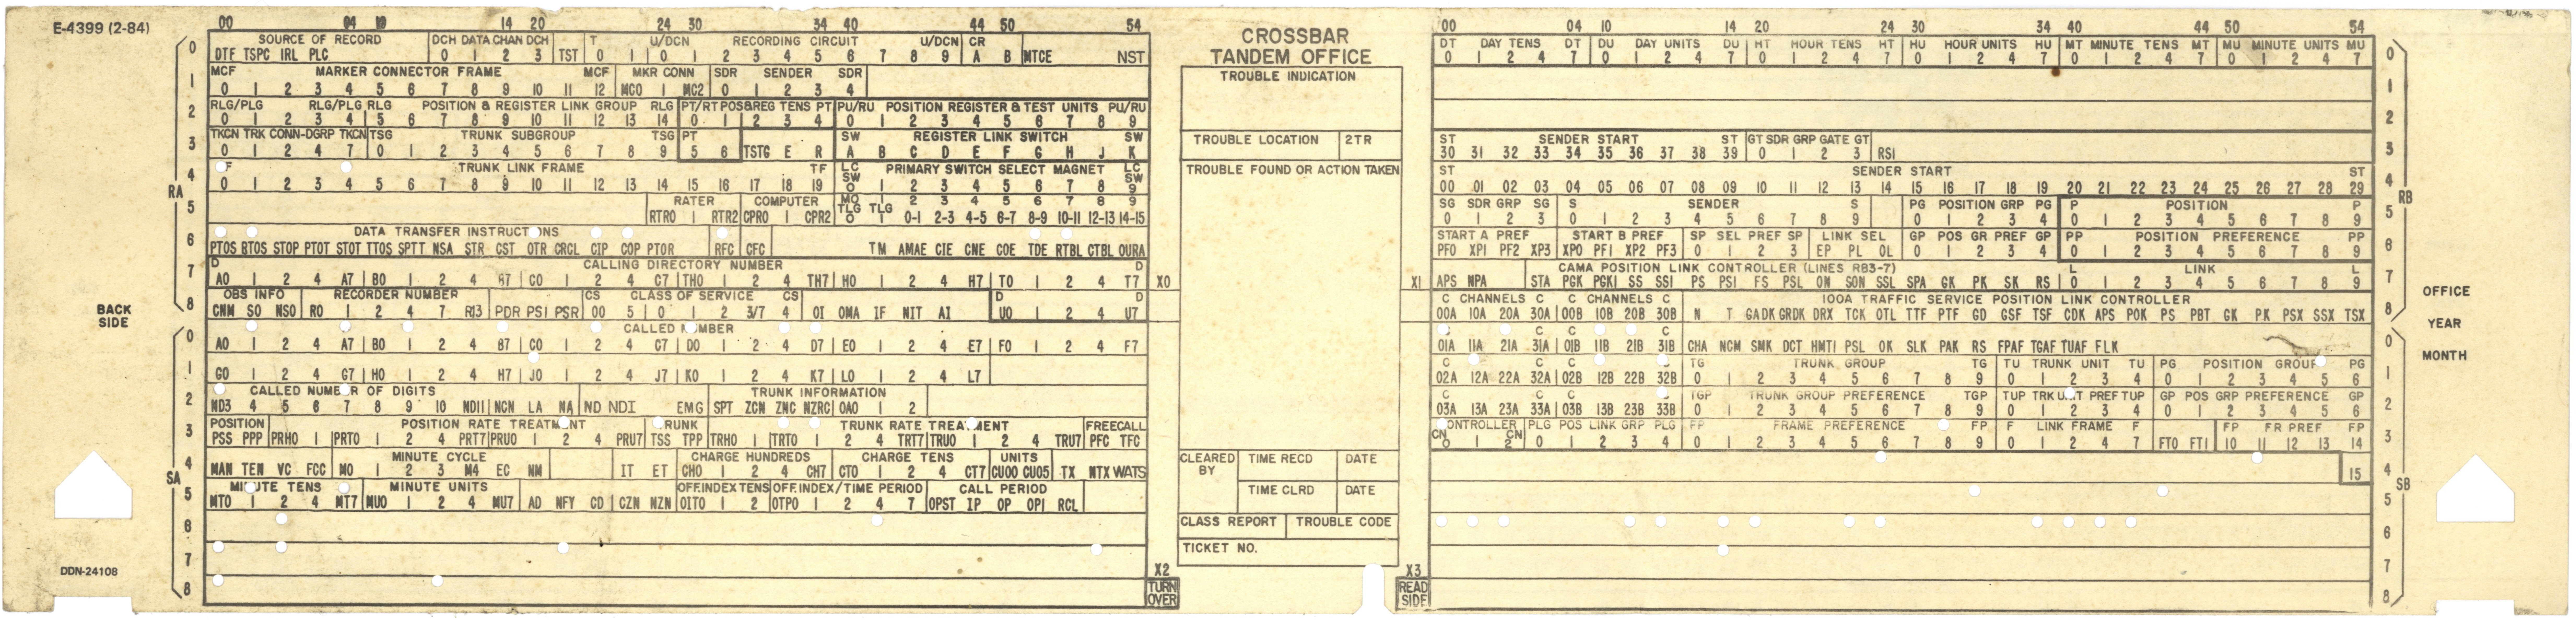 E-4399 (2-84)
00 04 10 14 20 24 30 34 40 44 50 54
0 SOURCE OF RECORD DCH DATA CHAN DCH T U/DCN RECORDING CIRCUIT U/DCN CR
DTF TSPC IRL PLC 0 1 2 3 TST 0 1 0 1 2 3 4 5 6 7 8 9 A B MTCE NST
1 MCF MARKER CONNECTOR FRAME MCF MKR CONN SDR SENDER SDR
0 1 2 3 4 5 6 7 8 9 10 11 12 MC0 1 MC2 0 1 2 3 4
2 RLG/PLG RLG/PLG RLG POSITION & REGISTER LINK GROUP RLG PT/RT POS&REG TENS PT PU/RU POSITION REGISTER & TEST UNITS PU/RU
0 1 2 3 4 5 6 7 8 9 10 11 12 13 14 0 1 2 3 4 0 1 2 3 4 5 6 7 8 9
3 TKCN TRK CONN-DGRP TKCN TSG TRUNK SUBGROUP TSG PT SW REGISTER LINK SWITCH SW
0 1 2 4 7 0 1 2 3 4 5 6 7 8 9 5 6 TSTG E R A B C D E F G H J K
4 F TRUNK LINK FRAME TF LC PRIMARY SWITCH SELECT MAGNET LC
SW SW
0 1 2 3 4 5 6 7 8 9 10 11 12 13 14 15 16 17 18 19 0 1 2 3 4 5 6 7 8 9
RA
5 RATER COMPUTER MO 1 2 3 4 5 6 7 8 9
RTR0 1 RTR2 CPR0 1 CPR2 TLG TLG 0-1 2-3 4-5 6-7 8-9 10-11 12-13 14-15
0 1
6 DATA TRANSFER INSTRUCTIONS
PTOS RTOS STOP PTOT STOT TTOS SPTT NSA STR CST OTR CRCL CIP COP PTOR RFC CFC TM AMAE CIE CNE COE TDE RTBL CTBL OURA
7 D CALLING DIRECTORY NUMBER D
A0 1 2 4 A7 B0 1 2 4 B7 C0 1 2 4 C7 TH0 1 2 4 TH7 H0 1 2 4 H7 T0 1 2 4 T7 X0
8 OBS INFO RECORDER NUMBER CS CLASS OF SERVICE CS D D
CNM SO NSO R0 1 2 4 7 R13 PDR PS1 PSR 00 5 0 1 2 3/7 4 OI OMA IF NIT AI U0 1 2 4 U7
BACK
SIDE
0 CALLED NUMBER
A0 1 2 4 A7 B0 1 2 4 B7 C0 1 2 4 C7 D0 1 2 4 D7 E0 1 2 4 E7 F0 1 2 4 F7
1 G0 1 2 4 G7 H0 1 2 4 H7 J0 1 2 4 J7 K0 1 2 4 K7 L0 1 2 4 L7
2 CALLED NUMBER OF DIGITS TRUNK INFORMATION
ND3 4 5 6 7 8 9 10 ND11 NCN LA NA ND ND1 EMG SPT ZCN ZNC NZRC OA0 1 2
3 POSITION POSITION RATE TREATMENT TRUNK TRUNK RATE TREATMENT FREECALL
PSS PPP PRH0 1 PRT0 1 2 4 PRT7 PRU0 1 2 4 PRU7 TSS TPP TRH0 1 TRT0 1 2 4 TRT7 TRU0 1 2 4 TRU7 PFC TFC
4 MINUTE CYCLE CHARGE HUNDREDS CHARGE TENS UNITS
MAN TEN VC FCC M0 1 2 3 M4 EC NM IT ET CH0 1 2 4 CH7 CT0 1 2 4 CT7 CU00 CU05 TX NTX WATS
SA
5 MINUTE TENS MINUTE UNITS OFF.INDEX TENS OFF.INDEX/TIME PERIOD CALL PERIOD
MT0 1 2 4 MT7 MU0 1 2 4 MU7 AD NFY CD CZN NZN OIT0 1 2 OTP0 1 2 4 7 OPST IP OP OPI RCL
6
7
DDN-24108
8
X2
TURN
OVER
CROSSBAR
TANDEM OFFICE
TROUBLE INDICATION
TROUBLE LOCATION 2TR
TROUBLE FOUND OR ACTION TAKEN
CLEARED
BY
TIME RECD DATE
TIME CLRD DATE
CLASS REPORT TROUBLE CODE
TICKET NO.
X1
X3
READ
SIDE
00 04 10 14 20 24 30 34 40 44 50 54
DT DAY TENS DT DU DAY UNITS DU HT HOUR TENS HT HU HOUR UNITS HU MT MINUTE TENS MT MU MINUTE UNITS MU 0
0 1 2 4 7 0 1 2 4 7 0 1 2 4 7 0 1 2 4 7 0 1 2 4 7 0 1 2 4 7
1
2
ST SENDER START ST GT SDR GRP GATE GT 3
30 31 32 33 34 35 36 37 38 39 0 1 2 3 RS1
ST SENDER START ST 4
00 01 02 03 04 05 06 07 08 09 10 11 12 13 14 15 16 17 18 19 20 21 22 23 24 25 26 27 28 29
RB
SG SDR GRP SG S SENDER S PG POSITION GRP PG P POSITION P 5
0 1 2 3 0 1 2 3 4 5 6 7 8 9 0 1 2 3 4 0 1 2 3 4 5 6 7 8 9
START A PREF START B PREF SP SEL PREF SP LINK SEL GP POS GR PREF GP PP POSITION PREFERENCE PP 6
PF0 XP1 PF2 XP3 XP0 PF1 XP2 PF3 0 1 2 3 EP PL OL 0 1 2 3 4 0 1 2 3 4 5 6 7 8 9
CAMA POSITION LINK CONTROLLER (LINES RB3-7) L LINK L 7
APS NPA STA PGK PGK1 SS SS1 PS PS1 FS PSL ON SON SSL SPA GK PK SK RS 0 1 2 3 4 5 6 7 8 9
C CHANNELS C C CHANNELS C 100A TRAFFIC SERVICE POSITION LINK CONTROLLER 8
00A 10A 20A 30A 00B 10B 20B 30B N T GADK GRDK DRX TCK OTL TTF PTF GD GSF TSF CDK APS POK PS PBT GK PK PSX SSX TSX
OFFICE
YEAR
MONTH
C C C 0
01A 11A 21A 31A 01B 11B 21B 31B CHA NCM SMK DCT HMT1 PSL OK SLK PAK RS FPAF TGAF TUAF FLK
C C C C TG TRUNK GROUP TG TU TRUNK UNIT TU PG POSITION GROUP PG 1
02A 12A 22A 32A 02B 12B 22B 32B 0 1 2 3 4 5 6 7 8 9 0 1 2 3 4 0 1 2 3 4 5 6
C C C C TGP TRUNK GROUP PREFERENCE TGP TUP TRK UNIT PREF TUP GP POS GRP PREFERENCE GP 2
03A 13A 23A 33A 03B 13B 23B 33B 0 1 2 3 4 5 6 7 8 9 0 1 2 3 4 0 1 2 3 4 5 6
CONTROLLER PLG POS LINK GRP PLG FP FRAME PREFERENCE FP F LINK FRAME F FP FR PREF FP 3
CN CN
0 1 2 0 1 2 3 4 5 0 1 2 3 4 5 6 7 8 9 0 1 2 4 7 FT0 FT1 10 11 12 13 14
15 4
SB
5
6
7
8